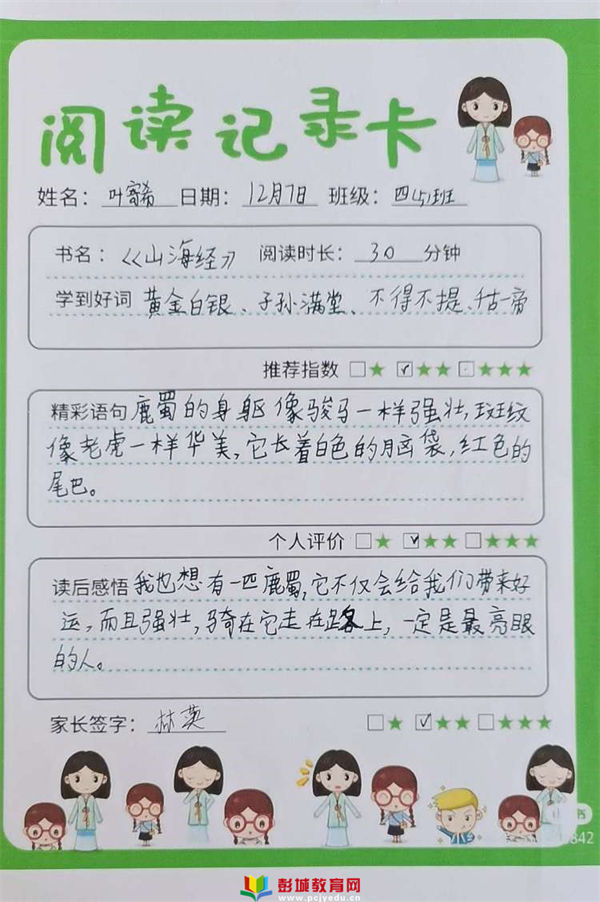 阅读记录卡
姓名：叶窝希 日期：12月7日 班级：四(5)班
书名：《山海经》 阅读时长：30 分钟
学到好词 黄金白银、子孙满堂、不得不提、
推荐指数 □★ ☑★★ □★★★
精彩语句 鹿蜀的身躯像骏马一样强壮,斑纹
像老虎一样华美,它长着白色的脑袋,红色的
尾巴。
个人评价 □★ ☑★★ □★★★
读后感悟 我也想有一匹鹿蜀,它不仅会给我们带来好
运,而且强壮,骑在它走在路上,一定是最亮眼
的人。
家长签字：林英 □★ ☑★★ □★★★
彭城教育网
www.pcjyedu.cn